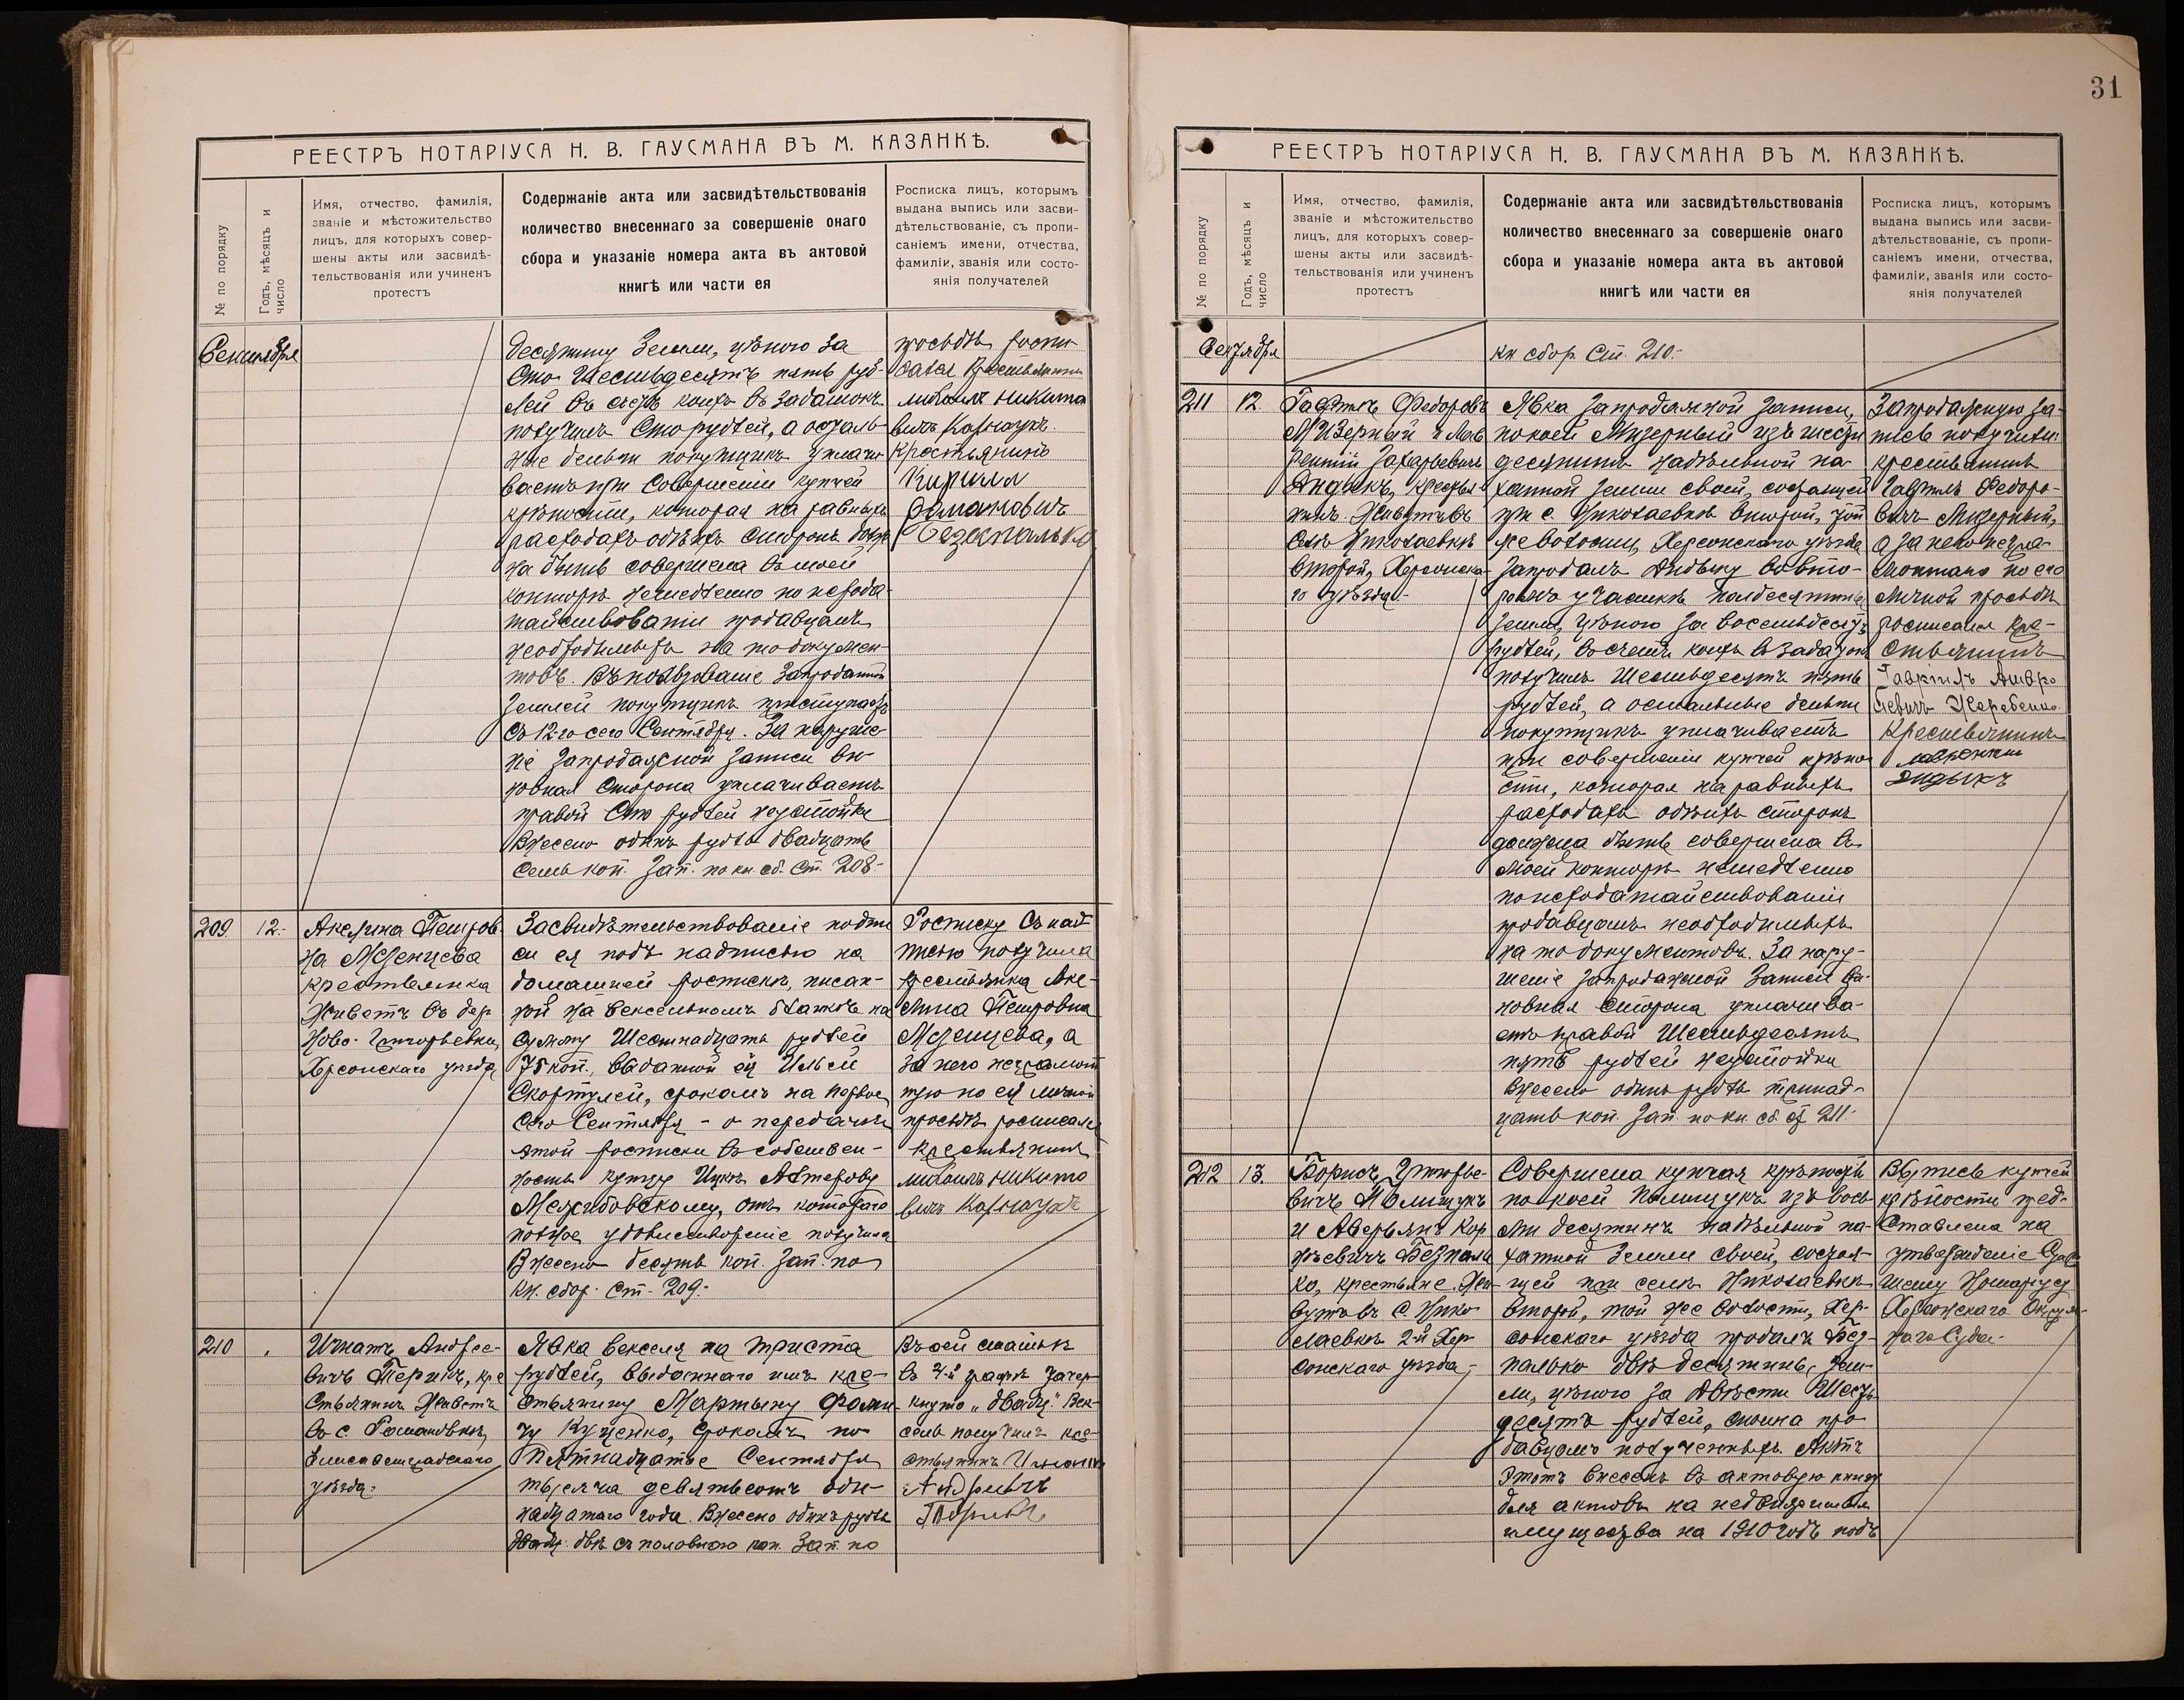 31
РЕЕСТРЪ НОТАРІУСА Н. В. ГАУСМАНА ВЪ М. КАЗАНКѢ.
№ по порядку
Годъ, мѣсяцъ и
число
Имя, отчество, фамилія,
званіе и мѣстожительство
лицъ, для которыхъ совер-
шены акты или засвидѣ-
тельствованія или учиненъ
протестъ
Содержаніе акта или засвидѣтельствованія
количество внесеннаго за совершеніе онаго
сбора и указаніе номера акта въ актовой
книгѣ или части ея
Росписка лицъ, которымъ
выдана выпись или засви-
дѣтельствованіе, съ пропи-
саніемъ имени, отчества,
фамиліи, званія или состо-
янія получателей
Сентября
десятину земли, цѣною за
сто шестьдесятъ пять руб-
лей въ счетъ коихъ въ задатокъ
получилъ сто рублей, а осталь-
ные деньги покупщикъ уплачи-
ваетъ при совершеніи купчей
крѣпости, которая на равныхъ
расходахъ обѣихъ сторонъ долж-
на быть совершена въ моей
конторѣ немедленно по исхода-
тайствованіи продавцамъ
необходимыхъ на то докумен-
товъ. Въ пользованіе запроданной
землей покупщикъ приступаетъ
съ 12-го сего Сентября. За наруше-
ніе запродажной записи ви-
новная сторона уплачиваетъ
правой сто рублей неустойки
Внесено одинъ рубль двадцать
семь коп. Зап. по кн. сб. ст. 208.-
просьбѣ роспи-
сался крестьянинъ
Михаилъ Никито
вичъ Карнаухъ.
Крестьянинъ
Кирилл
Романовичъ
Безпалько
209. 12.-
Акелина Петров-
на Мзенцева
крестьянка
живетъ въ дер.
Ново-Григорьевки,
Херсонскаго уѣзда
Засвидѣтельствованіе подпи
си ея подъ надписью на
домашней роспискѣ, писан-
ной на вексельномъ бланкѣ на
сумму Шестнадцать рублей
75 коп., выданной ей Ильей
срокомъ на первое
сего Сентября - о передачѣ
этой росписки въ собствен-
ность купцу Ицкѣ
Межибовскому, отъ котораго
полное удовлетвореніе получила
Внесено десять коп. Зап. по
кн. сбор. ст. 209.-
Росписку съ над-
писью получила
крестьянка Аке-
лина Петровна
Мзенцева, а
за него неграмот
ную по ея личной
просьбѣ росписался
крестьянинъ
Михаилъ Никито
вичъ Карнаухъ
210
Игнатъ Андрее-
вичъ кре
стьянинъ живетъ
въ с. Романовкѣ,
Елисаветградскаго
уѣзда.
Явка векселя на триста
рублей, выданнаго имъ кре-
стьянину Мартыну Фоми-
чу Куценко, срокомъ по
пятнадцатое Сентября
тысяча девятьсотъ оди-
надцатаго года. Внесено одинъ рубль
двѣ съ половиною коп. Зап. по
Въ сей статьѣ
въ 4-й графѣ зачер-
кнуто „двадц." Век-
сель получилъ кре-
стьянинъ Игнатъ
Андреевичъ
РЕЕСТРЪ НОТАРІУСА Н. В. ГАУСМАНА ВЪ М. КАЗАНКѢ.
№ по порядку
Годъ, мѣсяцъ и
число
Имя, отчество, фамилія,
званіе и мѣстожительство
лицъ, для которыхъ совер-
шены акты или засвидѣ-
тельствованія или учиненъ
протестъ
Содержаніе акта или засвидѣтельствованія
количество внесеннаго за совершеніе онаго
сбора и указаніе номера акта въ актовой
книгѣ или части ея
Росписка лицъ, которымъ
выдана выпись или засви-
дѣтельствованіе, съ пропи-
саніемъ имени, отчества,
фамиліи, званія или состо-
янія получателей
Сентября
кн сбор. ст. 210.-
211 12.
Гавріилъ Федоровъ
Мизерный и Лав
рентій Захарьевичъ
Андыкъ, крестья-
нинъ. Живутъ въ
селѣ Николаевкѣ
второй, Херсонска-
го уѣзда.-
Явка запродажной записи,
по коей Мизерный изъ шести
десятинъ надѣльной па-
хатной земли своей, состоящей
при с. Николаевкѣ второй, той
же волости, Херсонскаго уѣзда
запродалъ Андыку во вто-
ромъ участкѣ полдесятины
земли, цѣною за восемьдесятъ
рублей, въ счетъ коихъ въ задатокъ
получилъ Шестьдесятъ пять
рублей, а остальные деньги
покупщикъ уплачиваетъ
при совершеніи купчей крѣпо-
сти, которая на равныхъ
расходахъ обѣихъ сторонъ
должна быть совершена въ
моей конторѣ немедленно
по исходатайствованіи
продавцамъ необходимыхъ
на то документовъ. За нару-
шеніе запродажной записи ви-
новная сторона уплачива-
етъ правой Шестьдесятъ
пять рублей неустойки
Внесено одинъ рубль тринад-
цать коп. Зап. по кн. сб. ст. 211.-
Запродажную за-
пись получили:
крестьянинъ
Гавріилъ Федоро-
вичъ Мизерный,
а за него негра-
мотнаго по его
личной просьбѣ
росписался кре-
стьянинъ
Гавріилъ Амвро
сіевичъ Жеребенко
Крестьянинъ
Лаврентий
Андыкъ
212 13.
Борисъ Григорье-
вичъ Полищукъ
и Аверьянъ Кор
нѣевичъ Безпаль
ко, крестьяне. Жи-
вутъ въ с. Нико
лаевкѣ 2-й Хер-
сонскаго уѣзда.-
Совершена купчая крѣпость
по коей Полищукъ изъ вось-
ми десятинъ надѣльной па-
хатной земли своей, состоя-
щей при селѣ Николаевкѣ
второй, той же волости, Хер-
сонскаго уѣзда продалъ Без-
палько двѣ десятины зем-
ли, цѣною за двѣсти Шесть-
десятъ рублей, сполна про
давцомъ полученныхъ. Актъ
этотъ внесенъ въ актовую книгу
для актовъ на недвижимыя
имущества на 1910 годъ подъ
Выпись купчей
крѣпости пред-
ставлена на
утвержденіе Стар-
шему Нотаріусу
Херсонскаго Окруж-
наго Суда.-